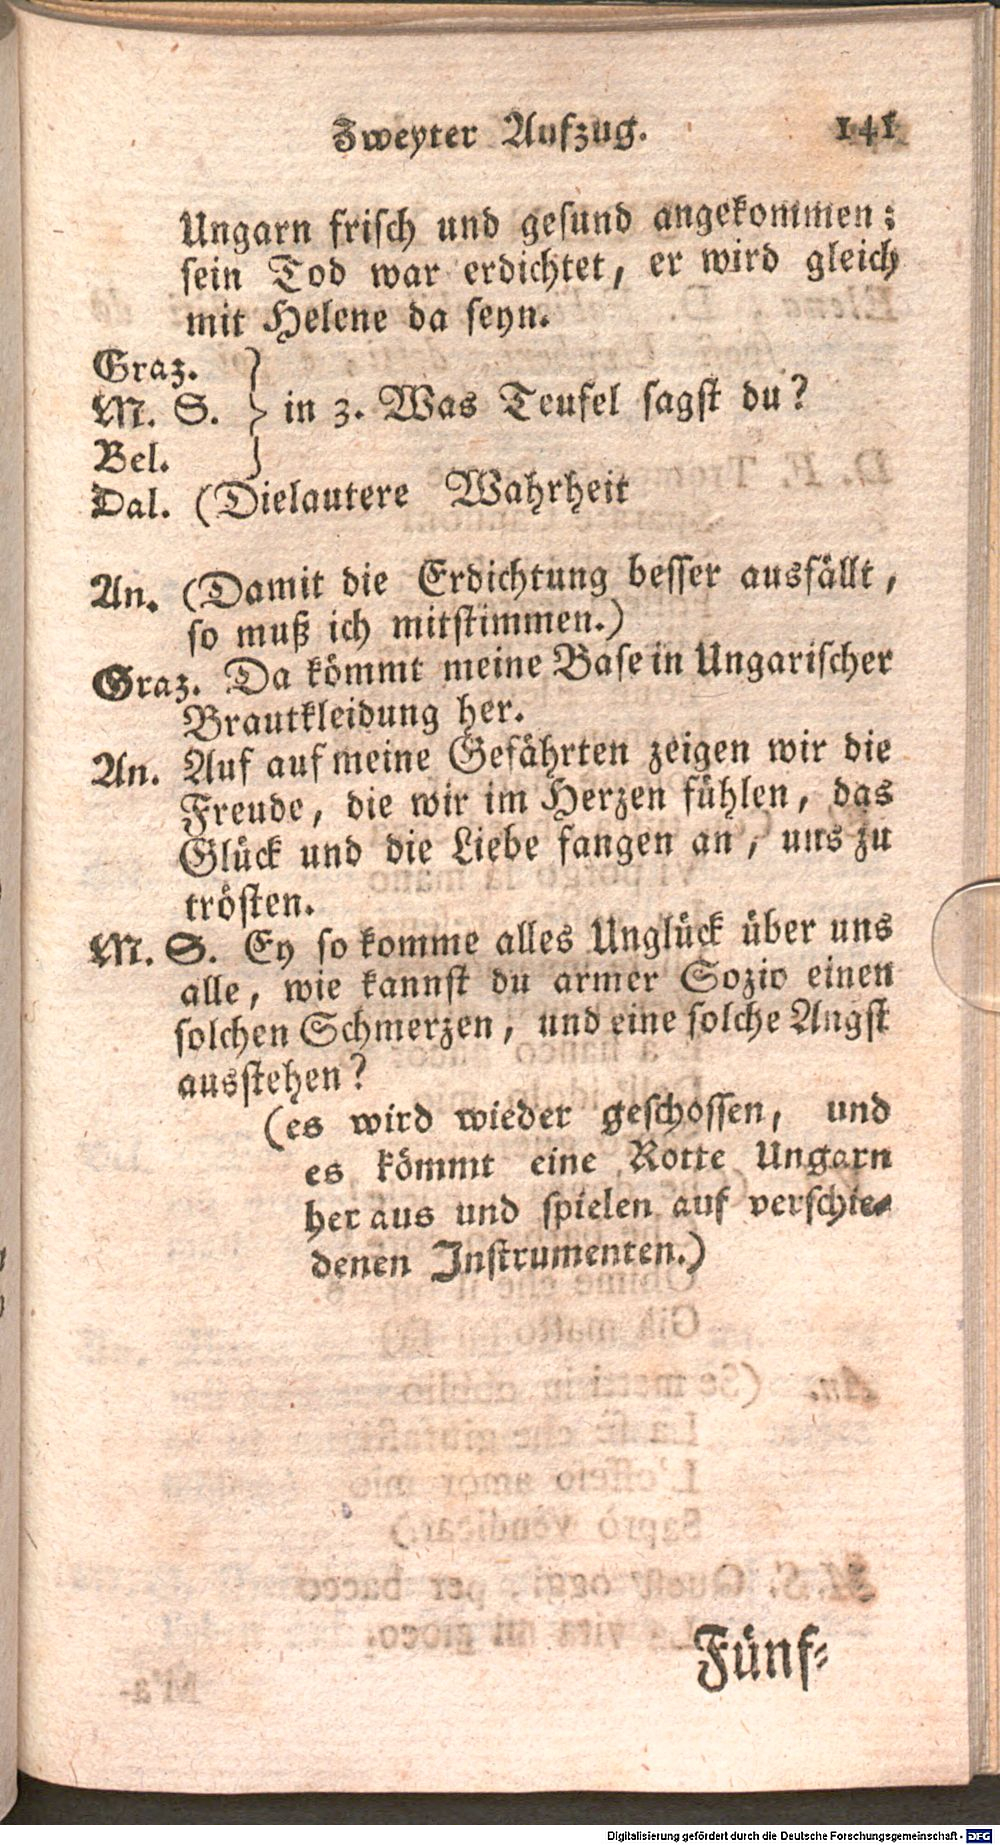 Zweyter Aufzug. 141
Ungarn frisch und gesund angekommen;
sein Tod war erdichtet, er wird gleich
mit Helene da seyn.
Graz.
M. S. } in 3. Was Teufel sagst du?
Bel.
Dal. (Dielautere Wahrheit
An. (Damit die Erdichtung besser ausfällt,
so muß ich mitstimmen.)
Graz. Da kömmt meine Base in Ungarischer
Brautkleidung her.
An. Auf auf meine Gefährten zeigen wir die
Freude, die wir im Herzen fühlen, das
Glück und die Liebe fangen an, uns zu
trösten.
M. S. Ey so komme alles Unglück über uns
alle, wie kannst du armer Sozio einen
solchen Schmerzen, und eine solche Angst
ausstehen?
(es wird wieder geschossen, und
es kömmt eine Rotte Ungarn
her aus und spielen auf verschie-
denen Instrumenten.)
Fünf-
Digitalisierung gefördert durch die Deutsche Forschungsgemeinschaft - DFG